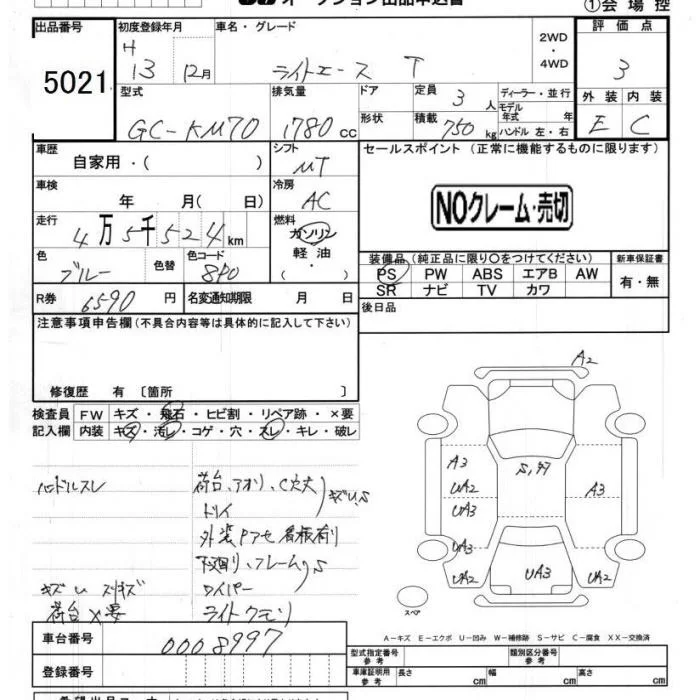 オークション出品申込書
①会場控
出品番号 初度登録年月 車名・グレード 評価点
5021
H 13 12月 ライトエース T
2WD ・ 4WD
3
型式 排気量 ドア 定員 3 人 ディーラー・並行 外装 内装
GC-KM70 1780 cc
形状 積載 750 kg モデル年式 年 ハンドル 左・右
E C
車歴 自家用・( ) シフト MT
セールスポイント (正常に機能するものに限ります)
車検 年 月(日) 冷房 AC
NOクレーム・売切
走行 4万5千524km 燃料 ガソリン 軽油 ・( ・ )
色 ブルー 色替 色コード 8P0
装備品(純正品に限り○をつけてください) 新車保証書
PS PW ABS エアB AW 有・無
SR ナビ TV カワ
R券 6590 円 名変通知期限 月 日
後日品
注意事項申告欄(不具合内容等は具体的に記入して下さい)
修復歴 有 〔箇所 〕
検査員 FW キズ・飛石・ヒビ割・リペア跡・×要
記入欄 内装 キズ・汚レ・コゲ・穴・スレ・キレ・破レ
A2
S,97
A3
UA2
UA3
UA3
UA2
A3
UA3
UA2
スペア
ハンドルスレ 荷台、アオリ、C穴大 キズU,S
トリイ
外装Pアセ 看板有り
下回り、フレームS
キズU スリキズ ワイパー
荷台×要 ライトクモリ
A−キズ E−エクボ U−凹み W−補修跡 S−サビ C−腐食 XX−交換済
車台番号 0008997
型式指定番号 参考 類別区分番号 参考
登録番号
車庫証明用 参考 長さ cm 幅 cm 高さ cm